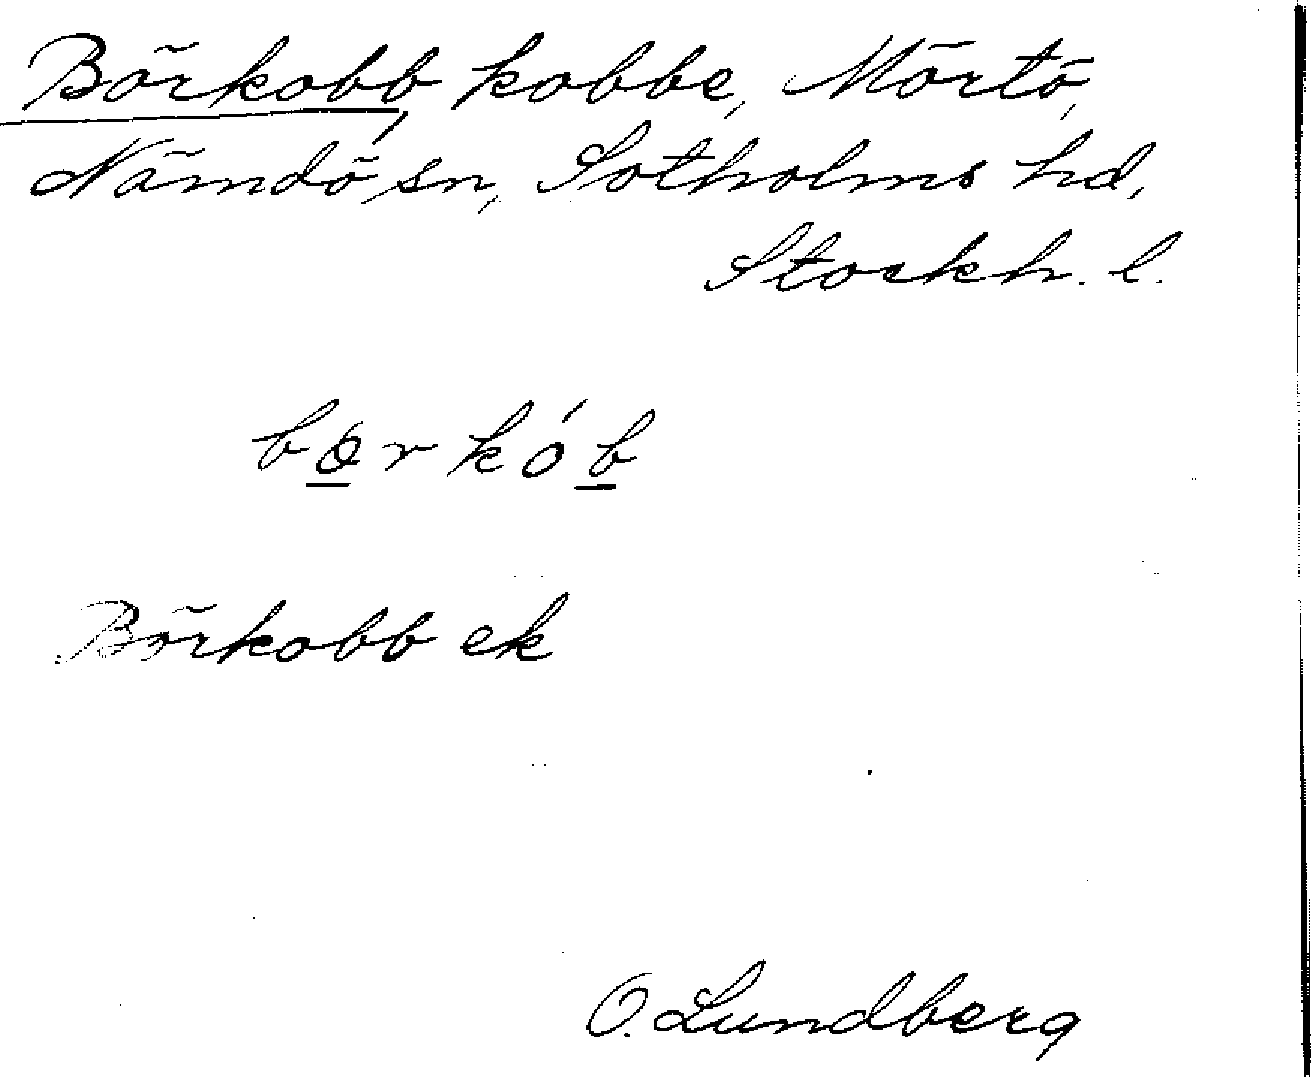 Börkobb, kobbe, Mörtö,
Nämdö sn, Sotholms hd,
Stockh. l.
børkób
Börkobb ek
O. Lundberg